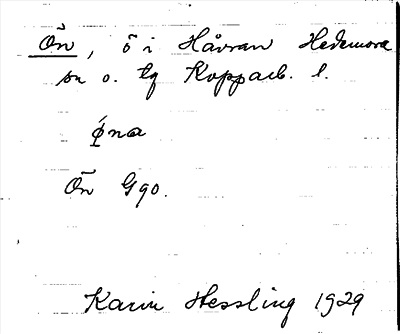 Ön, ö i Håvran Hedemora
sn o. tg Kopparb. l.
ǿna
Ön G90.
Karin Hessling 1929